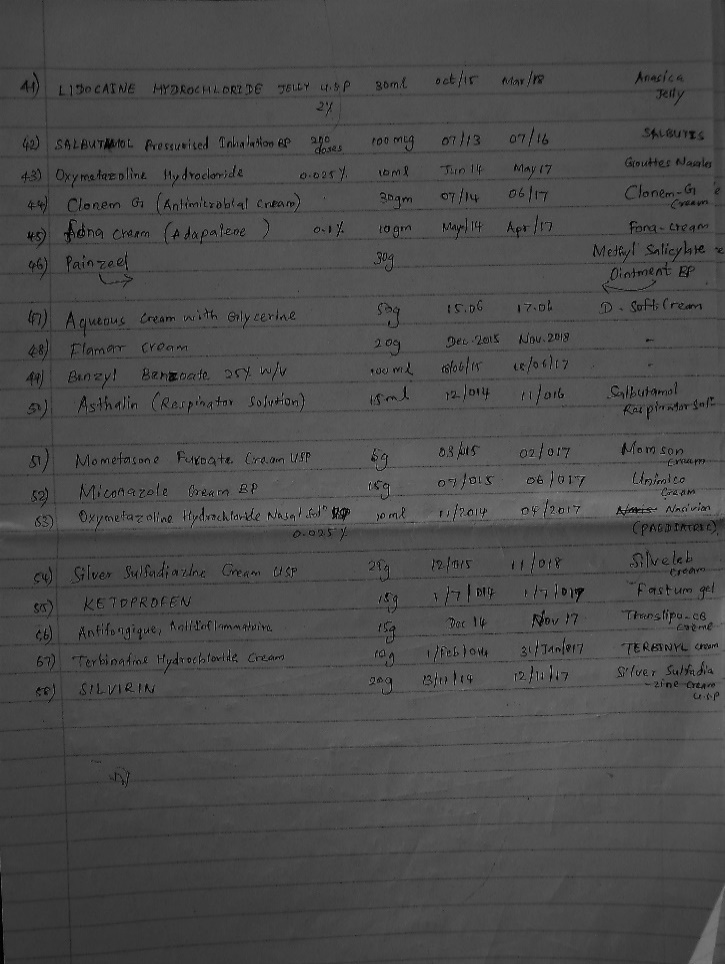 41) LIDOCAINE HYDROCHLORIDE JELLY U.S.P 30ml Oct/15 Mar/18 Anasica
2% Jelly
42) SALBUTAMOL Pressurised Inhalation BP 200 doses 100 mcg 07/13 07/16 SALBUTIS
43) Oxymetazoline Hydrocloride 0.025% 10ml Jun 14 May 17 Gouttes Nasales
44) Clonem G1 (Antimicrobial Cream) 30gm 07/14 06/17 Clonem-G1
Cream
45) Fona Cream (Adapalene) 0.1% 10gm May/14 Apr/17 Fona-Cream
46) Painzeel 30g Methyl Salicylate
Ointment BP
47) Aqueous Cream with Glycerine 50g 15.06 17.06 D. Soft Cream
48) Flamar Cream 20g Dec.2015 Nov.2018 -
49) Benzyl Benzoate 25% W/V 100 ml /06/15 /06/17 -
50) Asthalin (Respirator Solution) 15ml 12/014 11/016 Salbutamol
Respirator Sol
51) Mometasone Furoate Cream USP 5g 03/015 02/017 Momson
Cream
52) Miconazole Cream BP 15g 07/015 06/017 Unimico
Cream
53) Oxymetazoline Hydrochloride Nasal Solⁿ 10ml 11/2014 04/2017 Nacivion
0.025% (PAEDIATRIC)
54) Silver Sulfadiazine Cream USP 25g 12/015 11/018 Silveleb
Cream
55) KETOPROFEN 15g 1/7/014 1/7/017 Fastum gel
56) Antifongique, Antiinflammatoire 15g Dec 14 Nov 17 Translipo-CB
Creme
57) Terbinafine Hydrochloride Cream 10g 1/Feb/014 31/Jan/017 TERBINYL cream
58) SILVIRIN 20g 13/11/14 12/11/17 Silver Sulfadia
-zine Cream
U.S.P